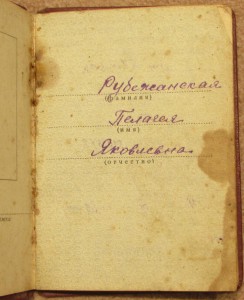 Рубежанская
(ФАМИЛИЯ)
Пелагея
(ИМЯ)
Яковлевна
(ОТЧЕСТВО)